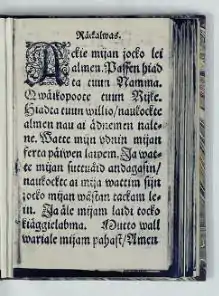 Räckalwas.
Atkie mijan jocko lei
almen. Passen hiad
ta tuun Namma.
Qwäikopoote tuun Rijke.
Hiadta tuun willio/ naukockte
almen nau ai ädnemen nale-
ne. Watte mijn udnin mijan
ferta päiwen laipem. Ja wat-
te mijan suttuüid andagasin/
naukockte ai mija wattim sijn
jocko mijan wästan tackam le-
in. Ja äle mijam laidi tocko
kiäggielabma. Mutto wall
wariale mijam pahast/ Amen